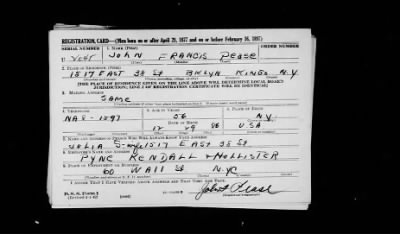 REGISTRATION CARD—(Men born on or after April 28, 1877 and on or before February 16, 1897)
SERIAL NUMBER 1. NAME (Print)
U JOHN FRANCIS Pease
2. PLACE OF RESIDENCE (Print)
1517 EAST 38 St BKLYN KINGS N.Y
[THE PLACE OF RESIDENCE GIVEN ON THE LINE ABOVE WILL DETERMINE LOCAL BOARD
JURISDICTION; LINE 2 OF REGISTRATION CERTIFICATE WILL BE IDENTICAL]
3. MAILING ADDRESS
SAME
4. TELEPHONE
NA8-1597 56 N.Y.
DATE OF BIRTH
12 29 86 USA
7. NAME AND ADDRESS OF PERSON WHO WILL ALWAYS KNOW YOUR ADDRESS
JULIA 1517 EAST 38 St
8. EMPLOYER'S NAME AND ADDRESS
PYNE KENDALL + HOLLISTER
9. PLACE OF EMPLOYMENT OR BUSINESS
60 WALL St NYC
I AFFIRM THAT I HAVE VERIFIED ABOVE ANSWERS AND THAT THEY ARE TRUE.
D. S. S. Form 1
John F Pease